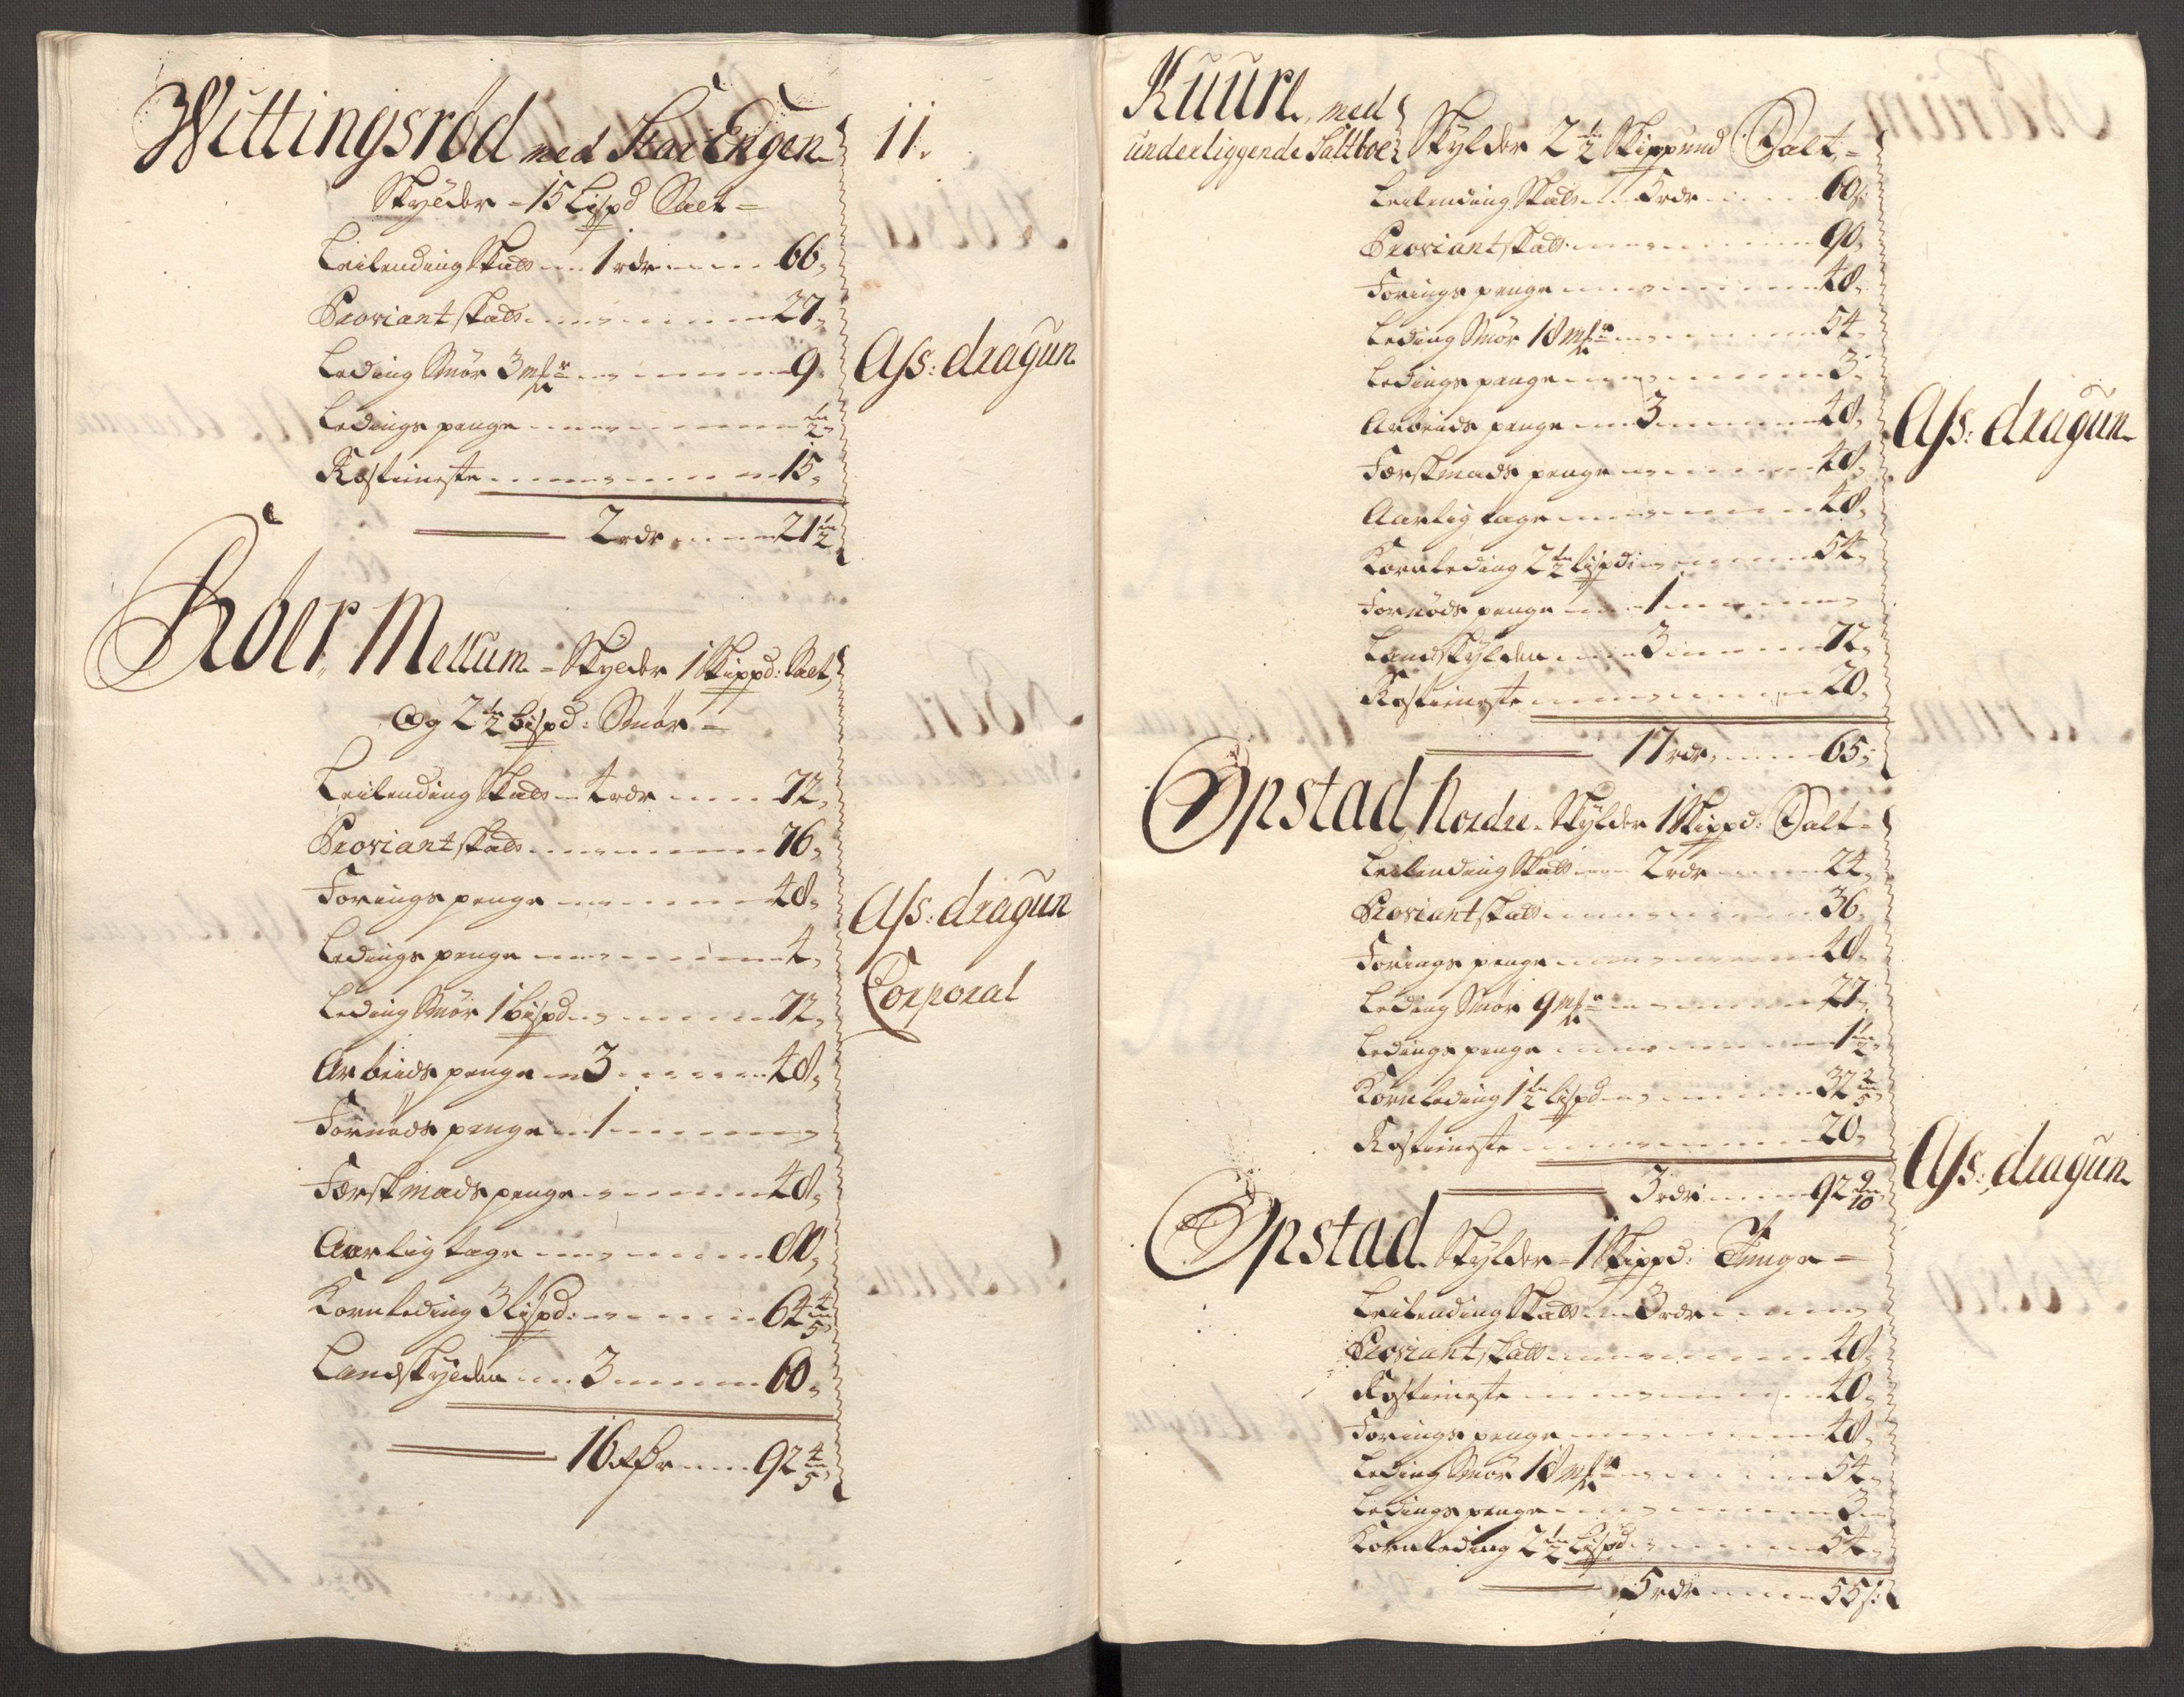 Wittingsröd med Star Engen
11.
Skylder - 15 Lispd Salt =
Leilending Skatt 1 rdr 66,
Proviant skatt 27,
Leding Smör 3 mkr 9,
Ass: dragun
Ledings penge 1/2,
Rostieneste 15,
2 rdr 21 1/2
Röer, Mellum = Skylder 1 Skippd: Salt,
Og 2 1/2 Bispd: Smör =
Leilending Skatt 4 rdr 72,
Proviant skatt 76,
Forings penge 48,
Ass: dragun
Ledings penge 4,
Corporal
Leding Smör 1 bispd 72,
Arbeids penge 3 48,
Fornöds penge 1
Ferskmads penge 48,
Aarlig tage
Kornleding 3 lispd: 64 4/5,
Landskylden 3 60,
16 rdr 92 4/5,
Kuure, med
underliggende Saltboe Skylder 2 1/2 Skippund Salt =
Leilending Skatt 5 rdr 60,
Proviant skatt 90,
Forings penge 48,
Leding Smör 18 mkr 54,
Ledings penge 3,
Arbeids penge 3 48,
Ass: dragun
Ferskmads penge 48,
Aarlig tage 48,
Kornleding 2 1/2 lispd: 54,
Fornöds penge 1
Landskylden 3 72,
Rostieneste 20,
17 rdr 65,
Opstad, Nordre - Skylder 1 Skippd: Salt =
Leilending Skatt 2 rdr 24,
Proviant skatt 36,
Forings penge 48,
Leding Smör 9 mkr 27,
Ledings penge 1 1/2,
Kornleding 1 1/2 lispd 32 2/5,
Rostieneste 20,
Ass: dragun
3 rdr 92 9/10
Opstad Skylder = 1 Skippd: Tunge =
Leilending Skatt 3 rdr
Proviant skatt 48,
Rostieneste 40,
Forings penge 48,
Leding Smör 18 mkr 54,
Ledings penge 3
Kornleding 2 1/2 Lispd 54,
5 rdr 55 s: